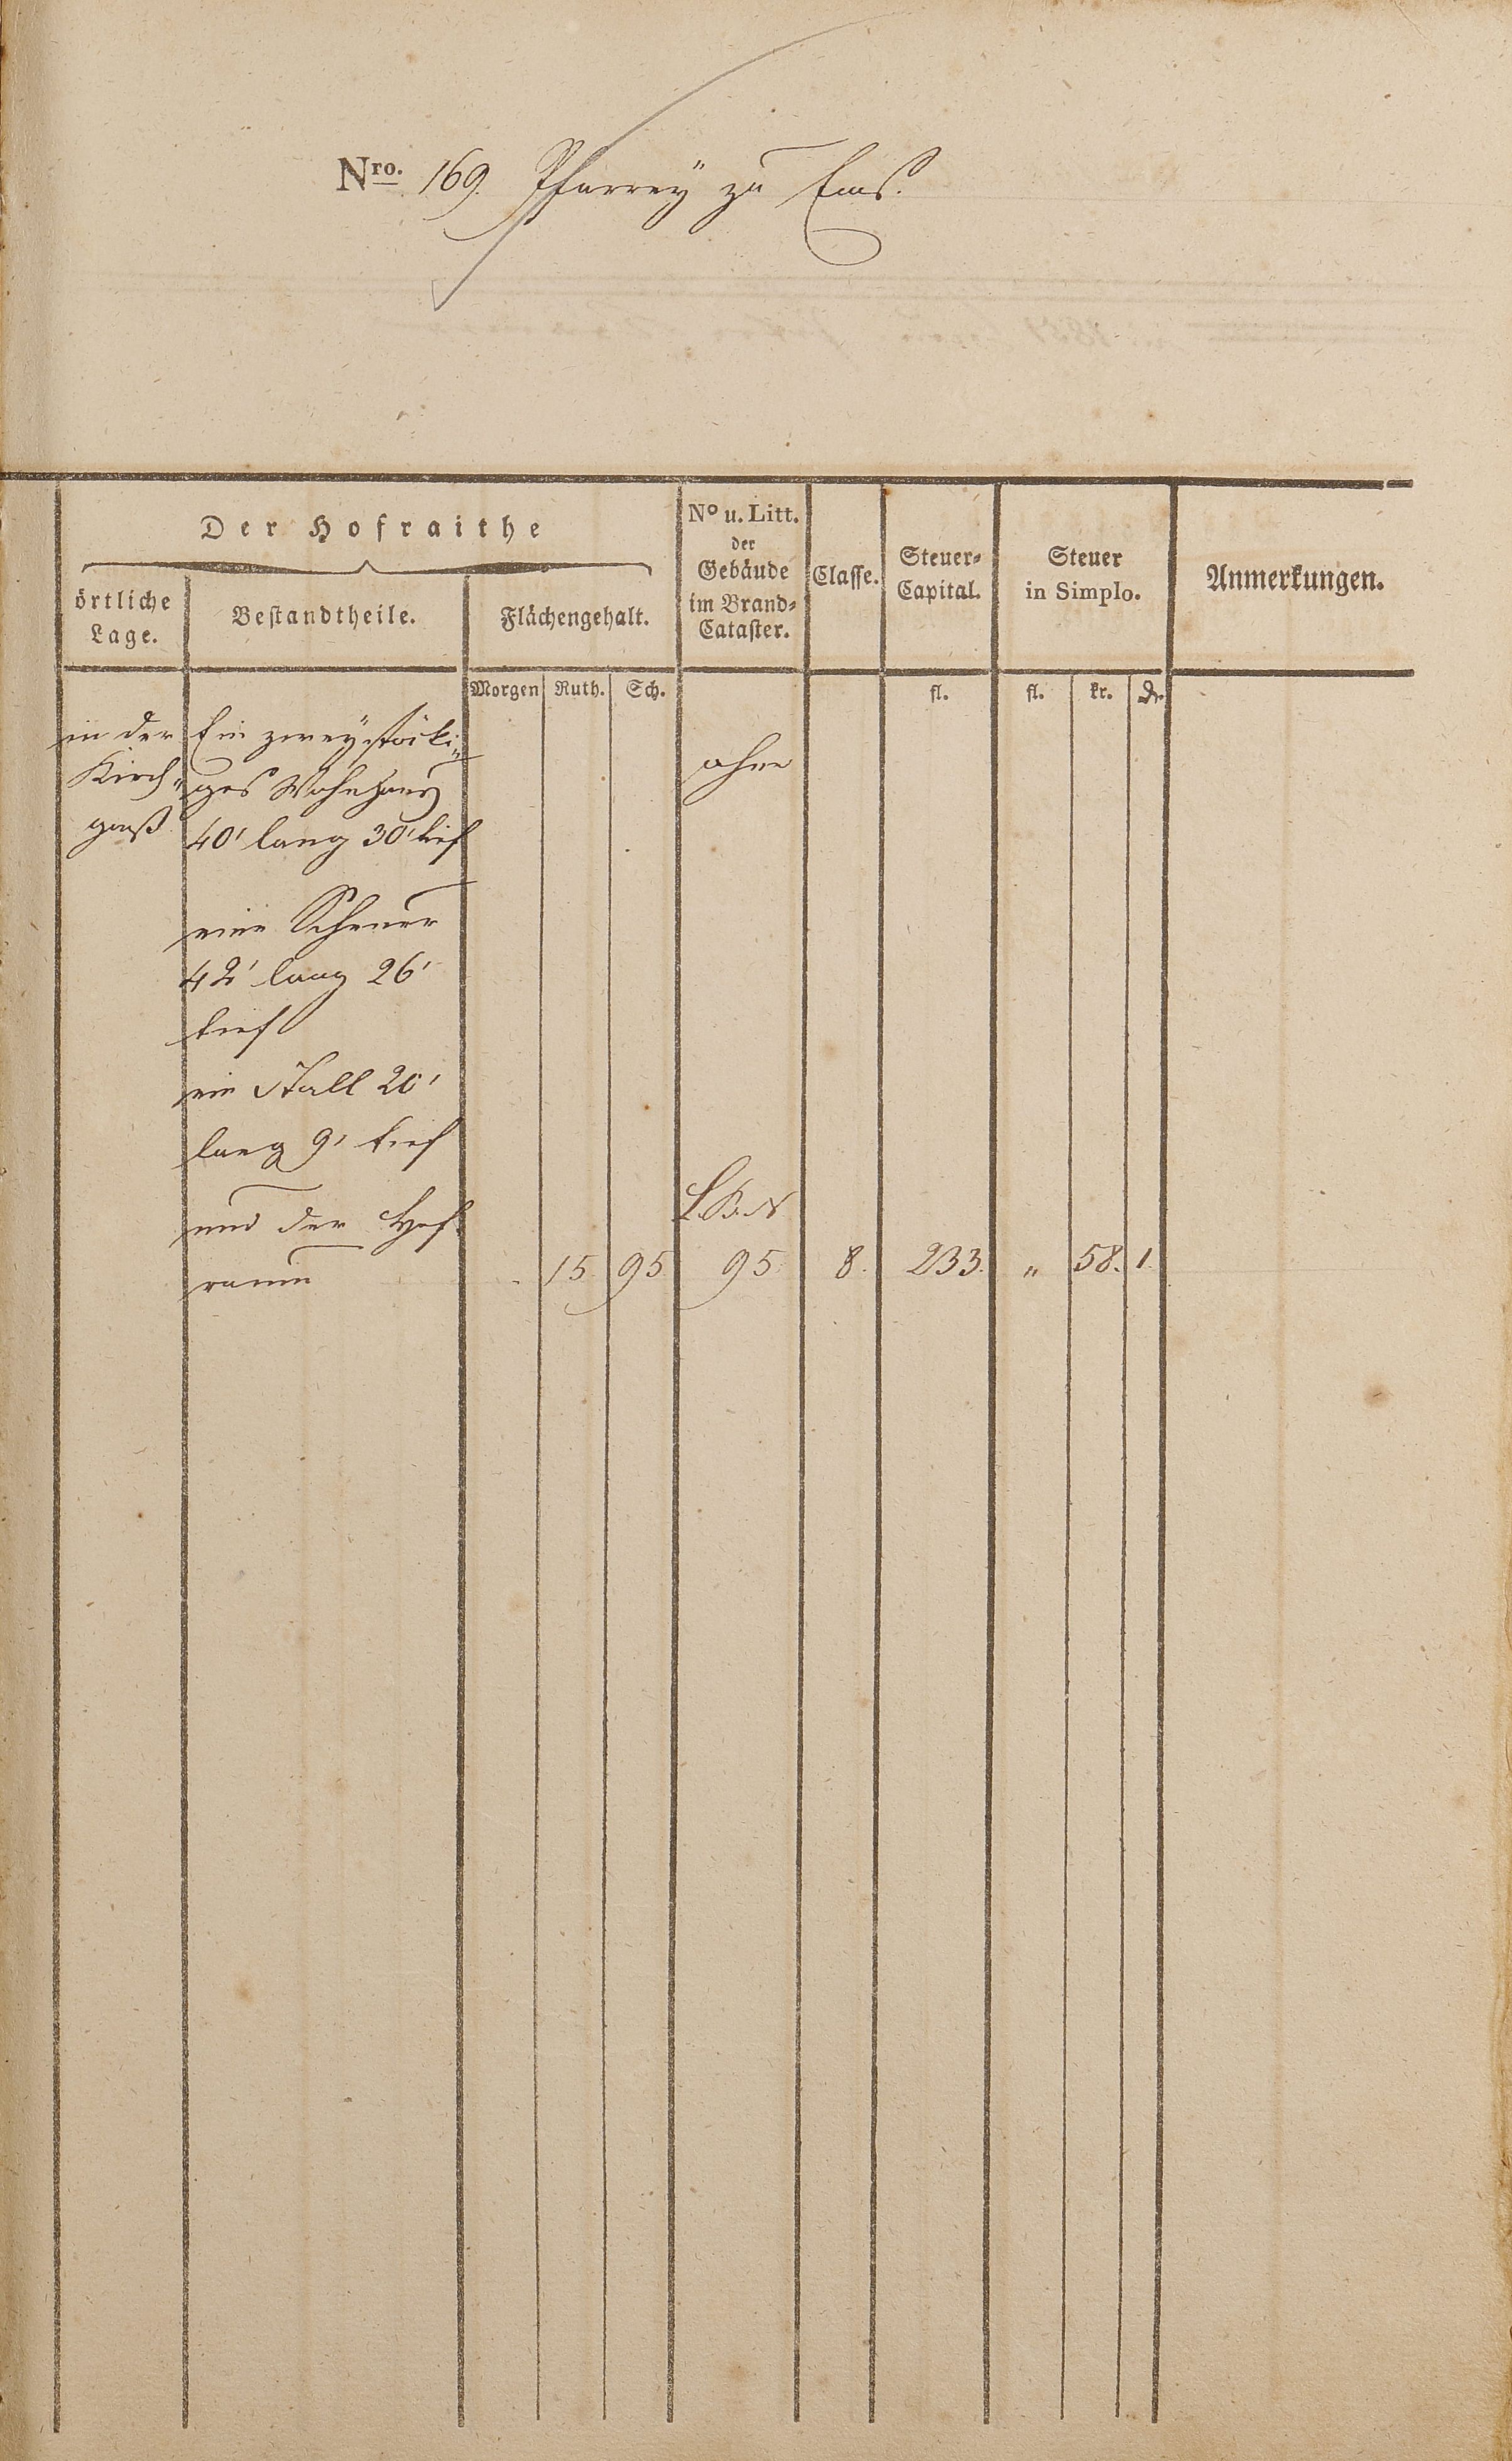 Nro. 169. Pfarrey zu Ems.
Der Hofraithe
örtliche Lage.
Bestandtheile.
Flächengehalt.
No u. Litt. der Gebäude im Brand-Cataster.
Classe.
Steuer-Capital.
Steuer in Simplo.
Anmerkungen.
Morgen Ruth. Sch. fl. fl. kr. d.
in der Ein zweystöcki„
Kirch„ ges Wohnhaus ohne
gaß 40' lang 30' tief
eine Scheuer
42' lang 26'
tief
ein Stall 20'
lang 9' tief
und der Hof- L.B.N
raum - 15. 95 95. 8. 233. „ 58. 1.